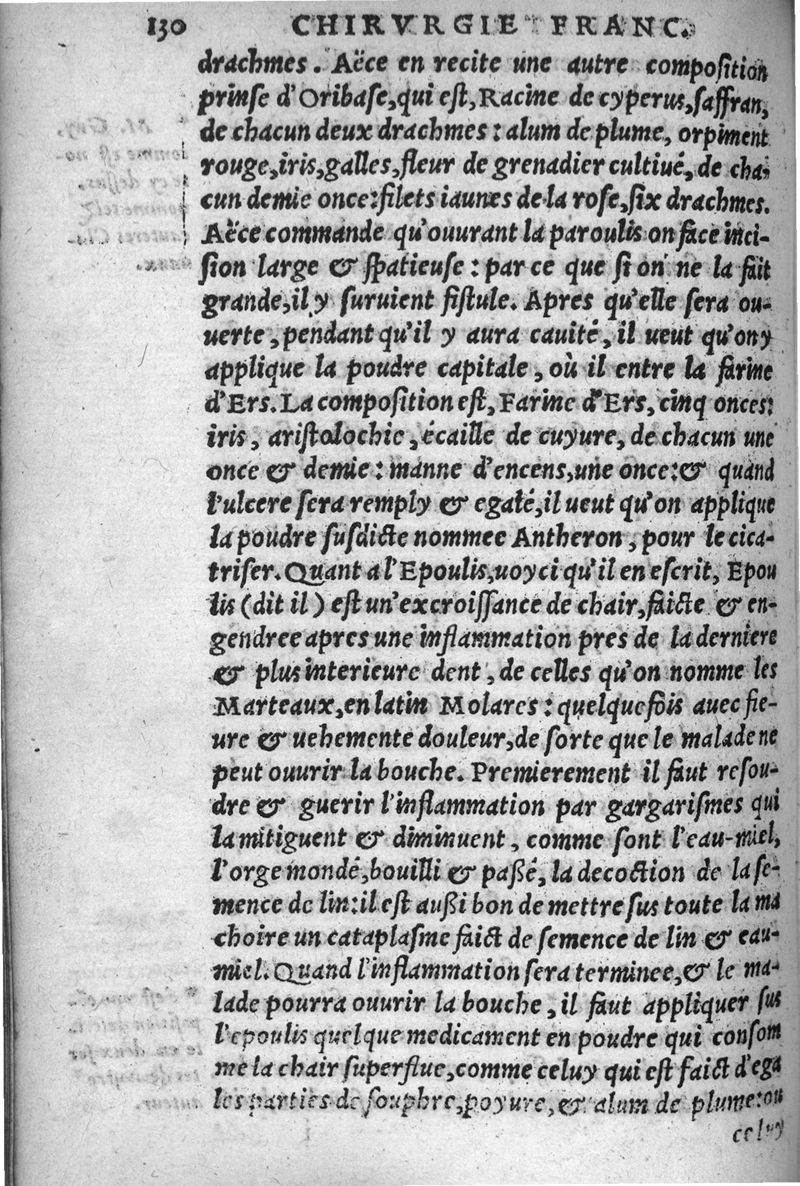 130 CHIRVRGIE FRANC.
drachmes. Aëce en recite une autre composition
prinse d'Oribase, qui est, Racine de cyperus, saffran,
de chacun deux drachmes: alum de plume, orpiment
rouge, iris, galles, fleur de grenadier cultiué, de cha-
cun demie once: filets iaunes de la rose, six drachmes.
Aëce commande qu'ouurant la paroulis on face inci-
sion large & spatieuse: par ce que si on ne la fait
grande, il y suruient fistule. Apres qu'elle sera ou-
uerte, pendant qu'il y aura cauité, il ueut qu'on y
applique la poudre capitale, où il entre la farine
d'Ers. La composition est, Farine d'Ers, cinq onces:
iris, aristolochie, écaille de cuyure, de chacun une
once & demie: manne d'encens, une once: & quand
l'ulcere sera remply & egalé, il ueut qu'on applique
la poudre susdicte nommee Antheron, pour le cica-
triser. Quant a l'Epoulis, uoyci qu'il en escrit, Epou
lis (dit il) est un'excroissance de chair, faicte & en-
gendree apres une inflammation pres de la derniere
& plus interieure dent, de celles qu'on nomme les
Marteaux, en latin Molares: quelquefois auec fie-
ure & uehemente douleur, de sorte que le malade ne
peut ouurir la bouche. Premierement il faut resou-
dre & guerir l'inflammation par gargarismes qui
la mitiguent & diminuent, comme sont l'eau-miel,
l'orge mondé, bouilli & passé, la decoction de la se-
mence de lin: il est aussi bon de mettre sus toute la ma
choire un cataplasme faict de semence de lin & eau-
miel. Quand l'inflammation sera terminee, & le ma-
lade pourra ouurir la bouche, il faut appliquer sus
l'epoulis quelque medicament en poudre qui consom
me la chair superflue, comme celuy qui est faict d'ega
les parties de souphre, poyure, & alum de plume: ou
celuy